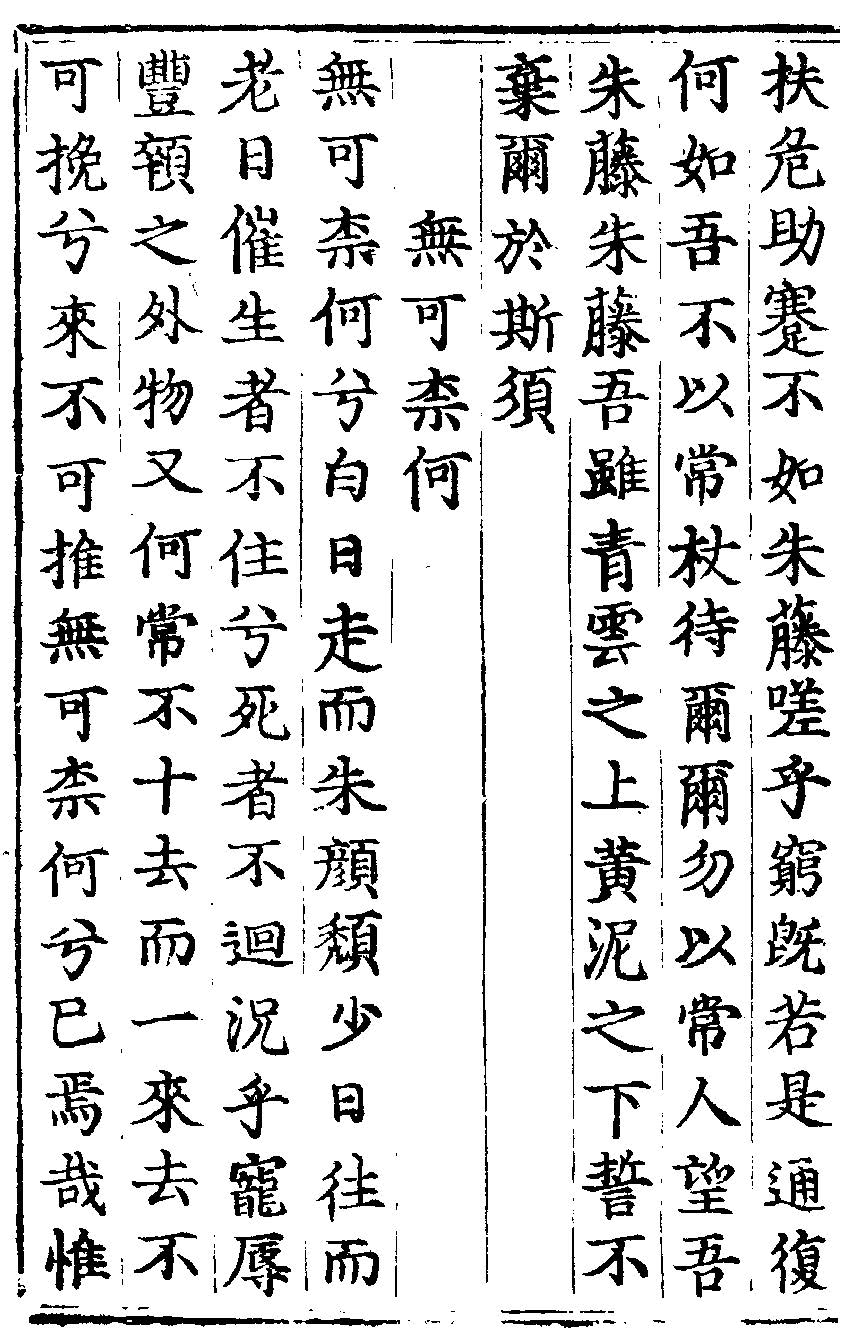 扶危助蹇不如朱藤嗟乎窮旣若是通復
何如吾不以常杖待爾爾勿以常人望吾
朱藤朱藤吾雖青雲之上黄泥之下誓不
棄爾於斯須
無可柰何
無可柰何兮白日走而朱顔頽少日往而
老日催生者不住兮死者不迴況乎寵辱
豐顇之外物又何常不十去而一來去不
可挽兮來不可推無可柰何兮已焉哉惟